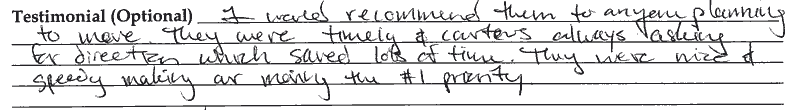 Testimonial (Optional) I would recommend them to anyone planning
to move. They were timely & courteous always asking
for direction which saved lots of time. They were nice &
speedy making our money the #1 priority